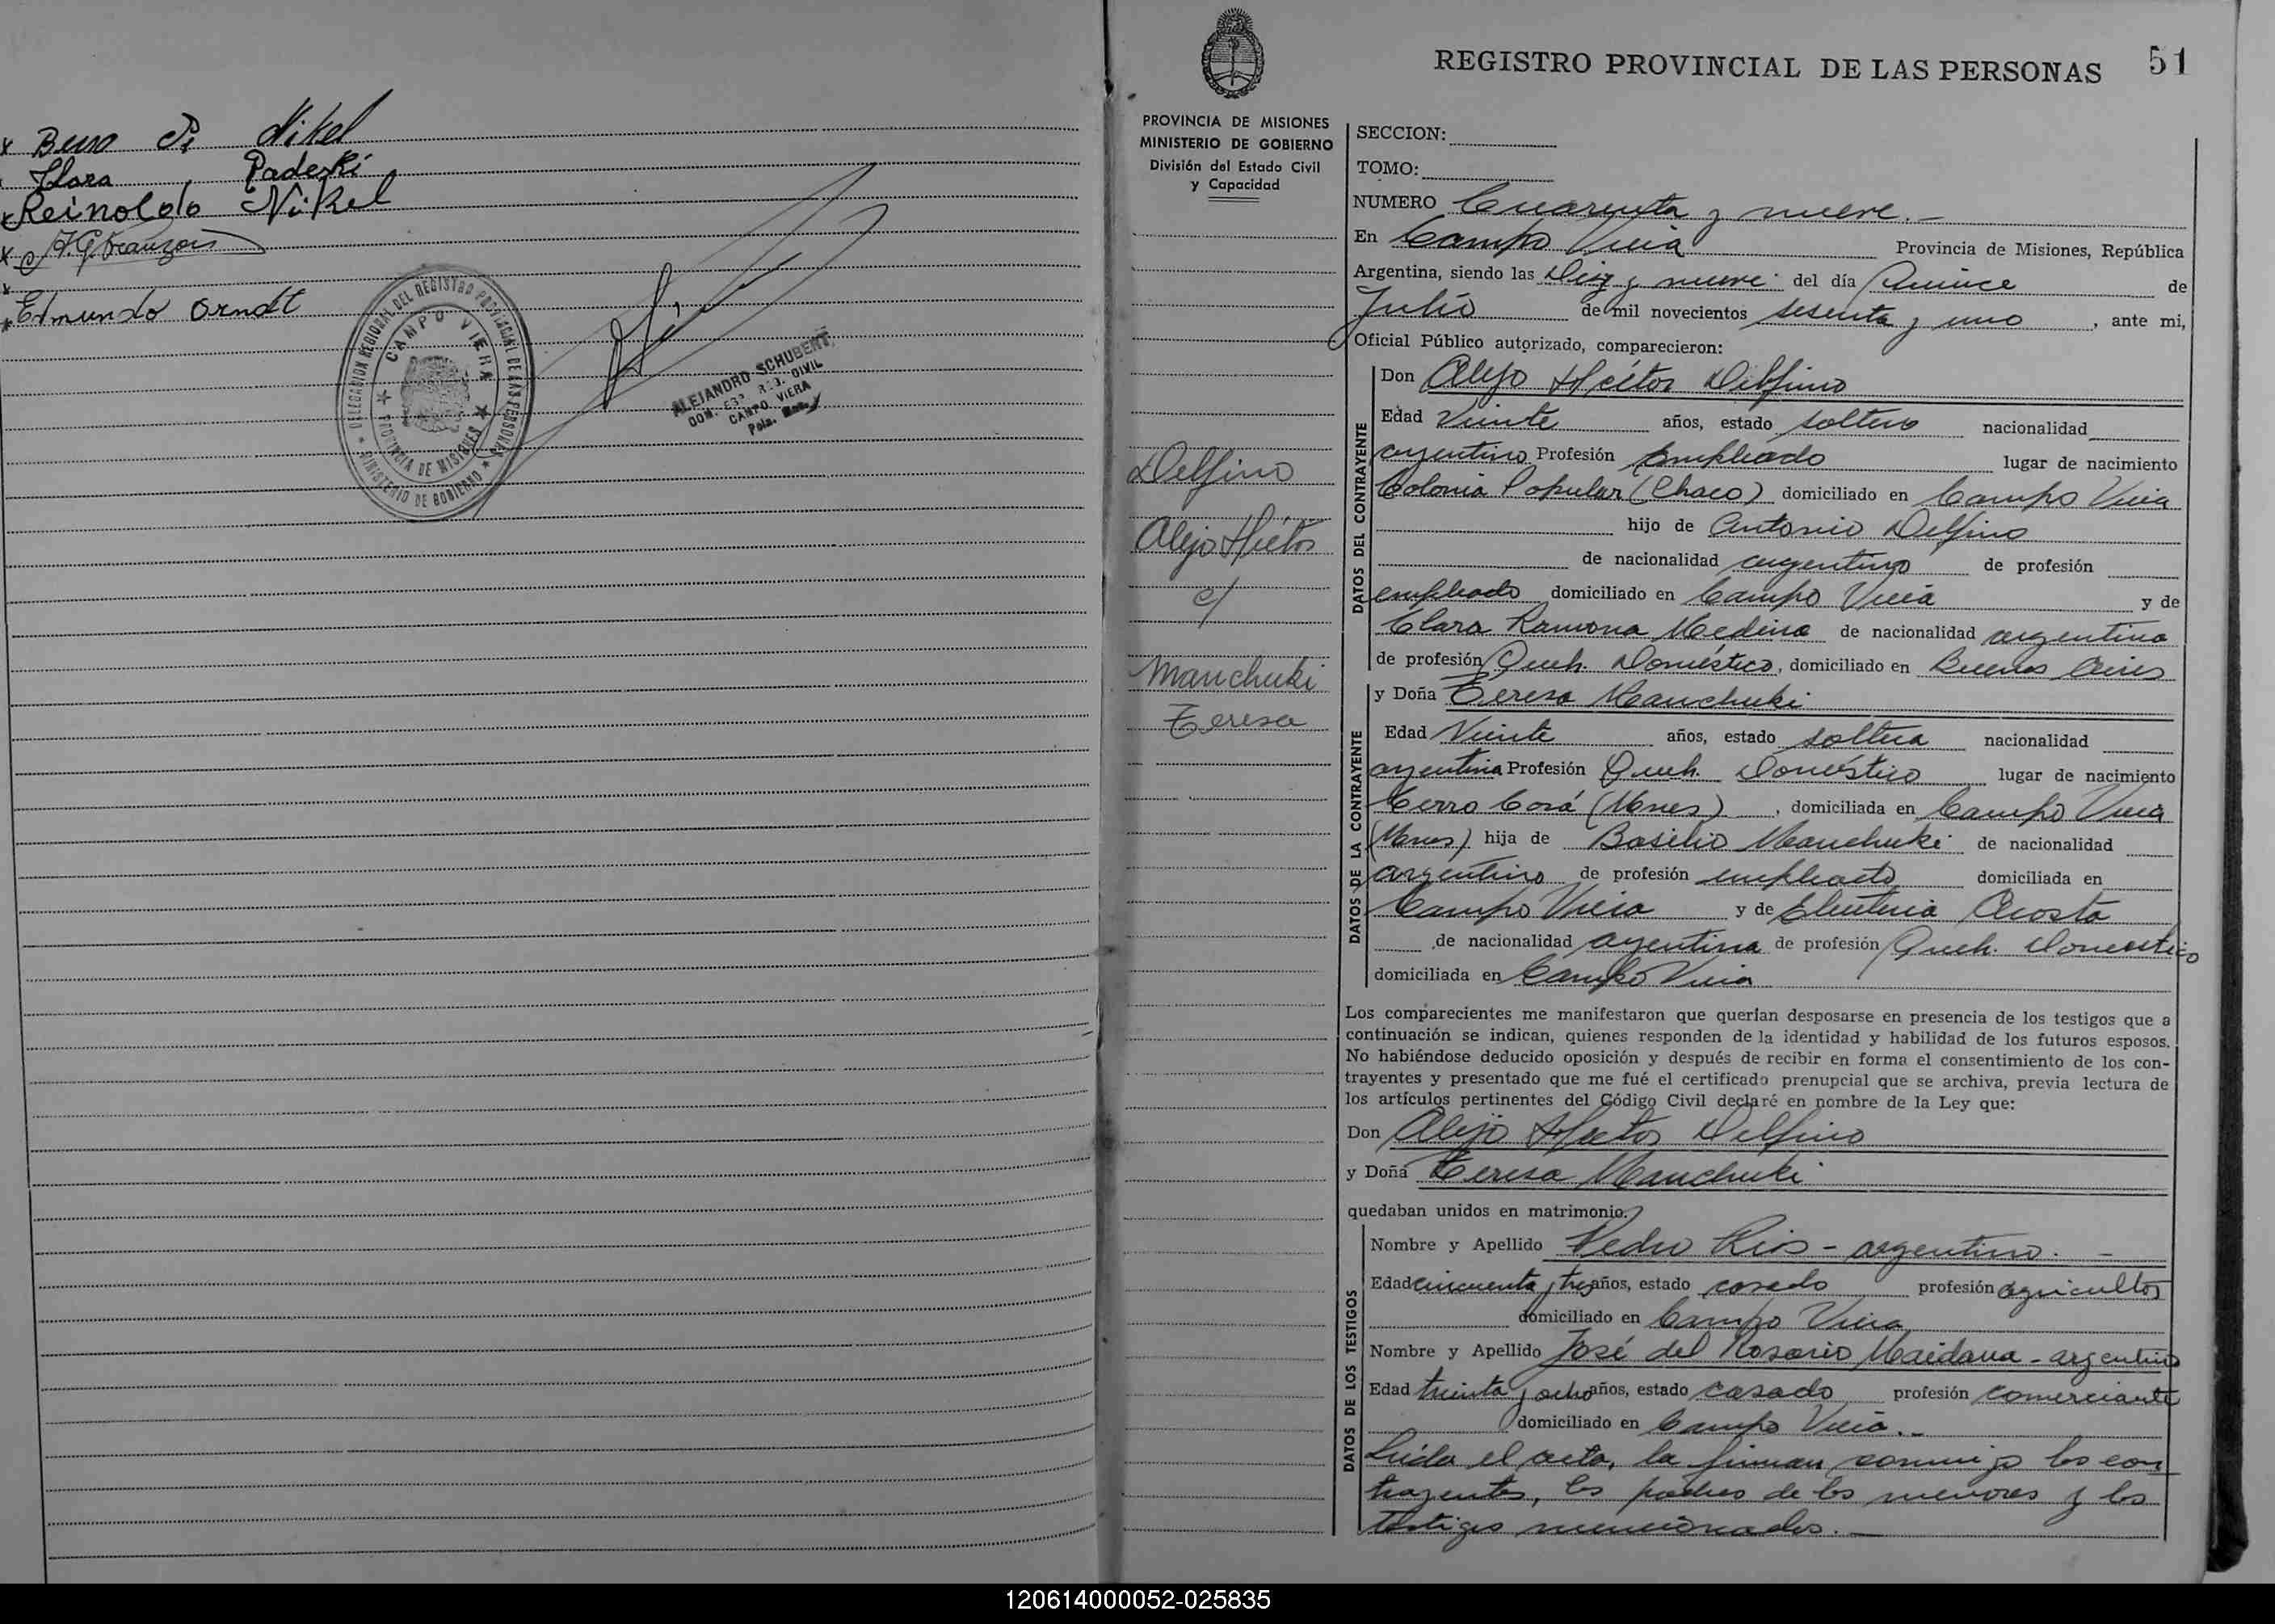 x Beno P. Nikel
Flora Padeski
x Reinoldo Nikel
x
x
x Edmundo Arndt
DELEGACION REGIONAL DEL REGISTRO PROVINCIAL DE LAS PERSONAS
CAMPO VIERA
PROVINCIA DE MISIONES
MINISTERIO DE GOBIERNO
ALEJANDRO SCHUBERT
CAMPO VIERA
REGISTRO PROVINCIAL DE LAS PERSONAS 51
PROVINCIA DE MISIONES
MINISTERIO DE GOBIERNO
División del Estado Civil
y Capacidad
Delfino
Alejo Héctor
c/
Manchuki
Teresa
SECCION:
TOMO:
NUMERO Cuarenta y nueve.-
En Campo Viera Provincia de Misiones, República
Argentina, siendo las Diez y nueve del día Quince de
Julio de mil novecientos sesenta y uno, ante mi,
Oficial Público autorizado, comparecieron:
DATOS DEL CONTRAYENTE
Don Alejo Héctor Delfino
Edad Veinte años, estado soltero nacionalidad
argentino Profesión Empleado lugar de nacimiento
Colonia Popular (Chaco) domiciliado en Campo Viera
hijo de Antonio Delfino
de nacionalidad argentino de profesión
empleado domiciliado en Campo Viera y de
Clara Ramona Medina de nacionalidad argentina
de profesión Queh. Doméstico, domiciliado en Buenos Aires
DATOS DE LA CONTRAYENTE
y Doña Teresa Manchuki
Edad Veinte años, estado soltera nacionalidad
argentina Profesión Queh. Doméstico lugar de nacimiento
Cerro Corá (Mnes), domiciliada en Campo Viera
(Mnes) hija de Basilio Manchuki de nacionalidad
argentino de profesión empleado domiciliada en
Campo Viera y de Eleuteria Acosta
de nacionalidad argentina de profesión Queh. Domestico
domiciliada en Campo Viera
Los comparecientes me manifestaron que querían desposarse en presencia de los testigos que a
continuación se indican, quienes responden de la identidad y habilidad de los futuros esposos.
No habiéndose deducido oposición y después de recibir en forma el consentimiento de los con-
trayentes y presentado que me fué el certificado prenupcial que se archiva, previa lectura de
los artículos pertinentes del Código Civil declaré en nombre de la Ley que:
Don Alejo Hector Delfino
y Doña Teresa Manchuki
quedaban unidos en matrimonio.
DATOS DE LOS TESTIGOS
Nombre y Apellido Pedro Rios - argentino. -
Edad cincuenta y tres años, estado casado profesión agricultor
domiciliado en Campo Viera
Nombre y Apellido José del Rosario Maidana - argentino
Edad treinta y ocho años, estado casado profesión comerciante
domiciliado en Campo Viera.-
Leída el acta, la firman conmigo los con
trayentes, los padres de los menores y los
testigos mencionados.-
120614000052-025835